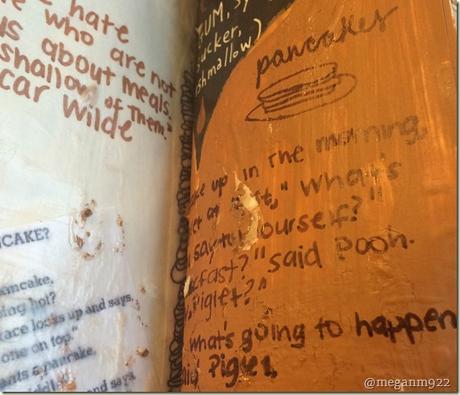 hate
who are not
about meals.
shallow of them."
car Wilde
NCAKE?
ancake,
ing hoł?
ace looks up and says,
one on top."
ants a pancake,
and says
UM, SY
ucker,
shmallow)
pancakes
up in the morning,
" What's
say to yourself?"
kfast?" said Pooh.
Piglet?"
what's going to happen
Piglet.
@meganm922